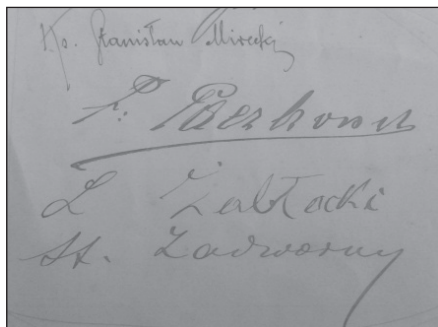 Ks. Stanisław Mirecki
F.
L Zabłocki
St. Zadworny